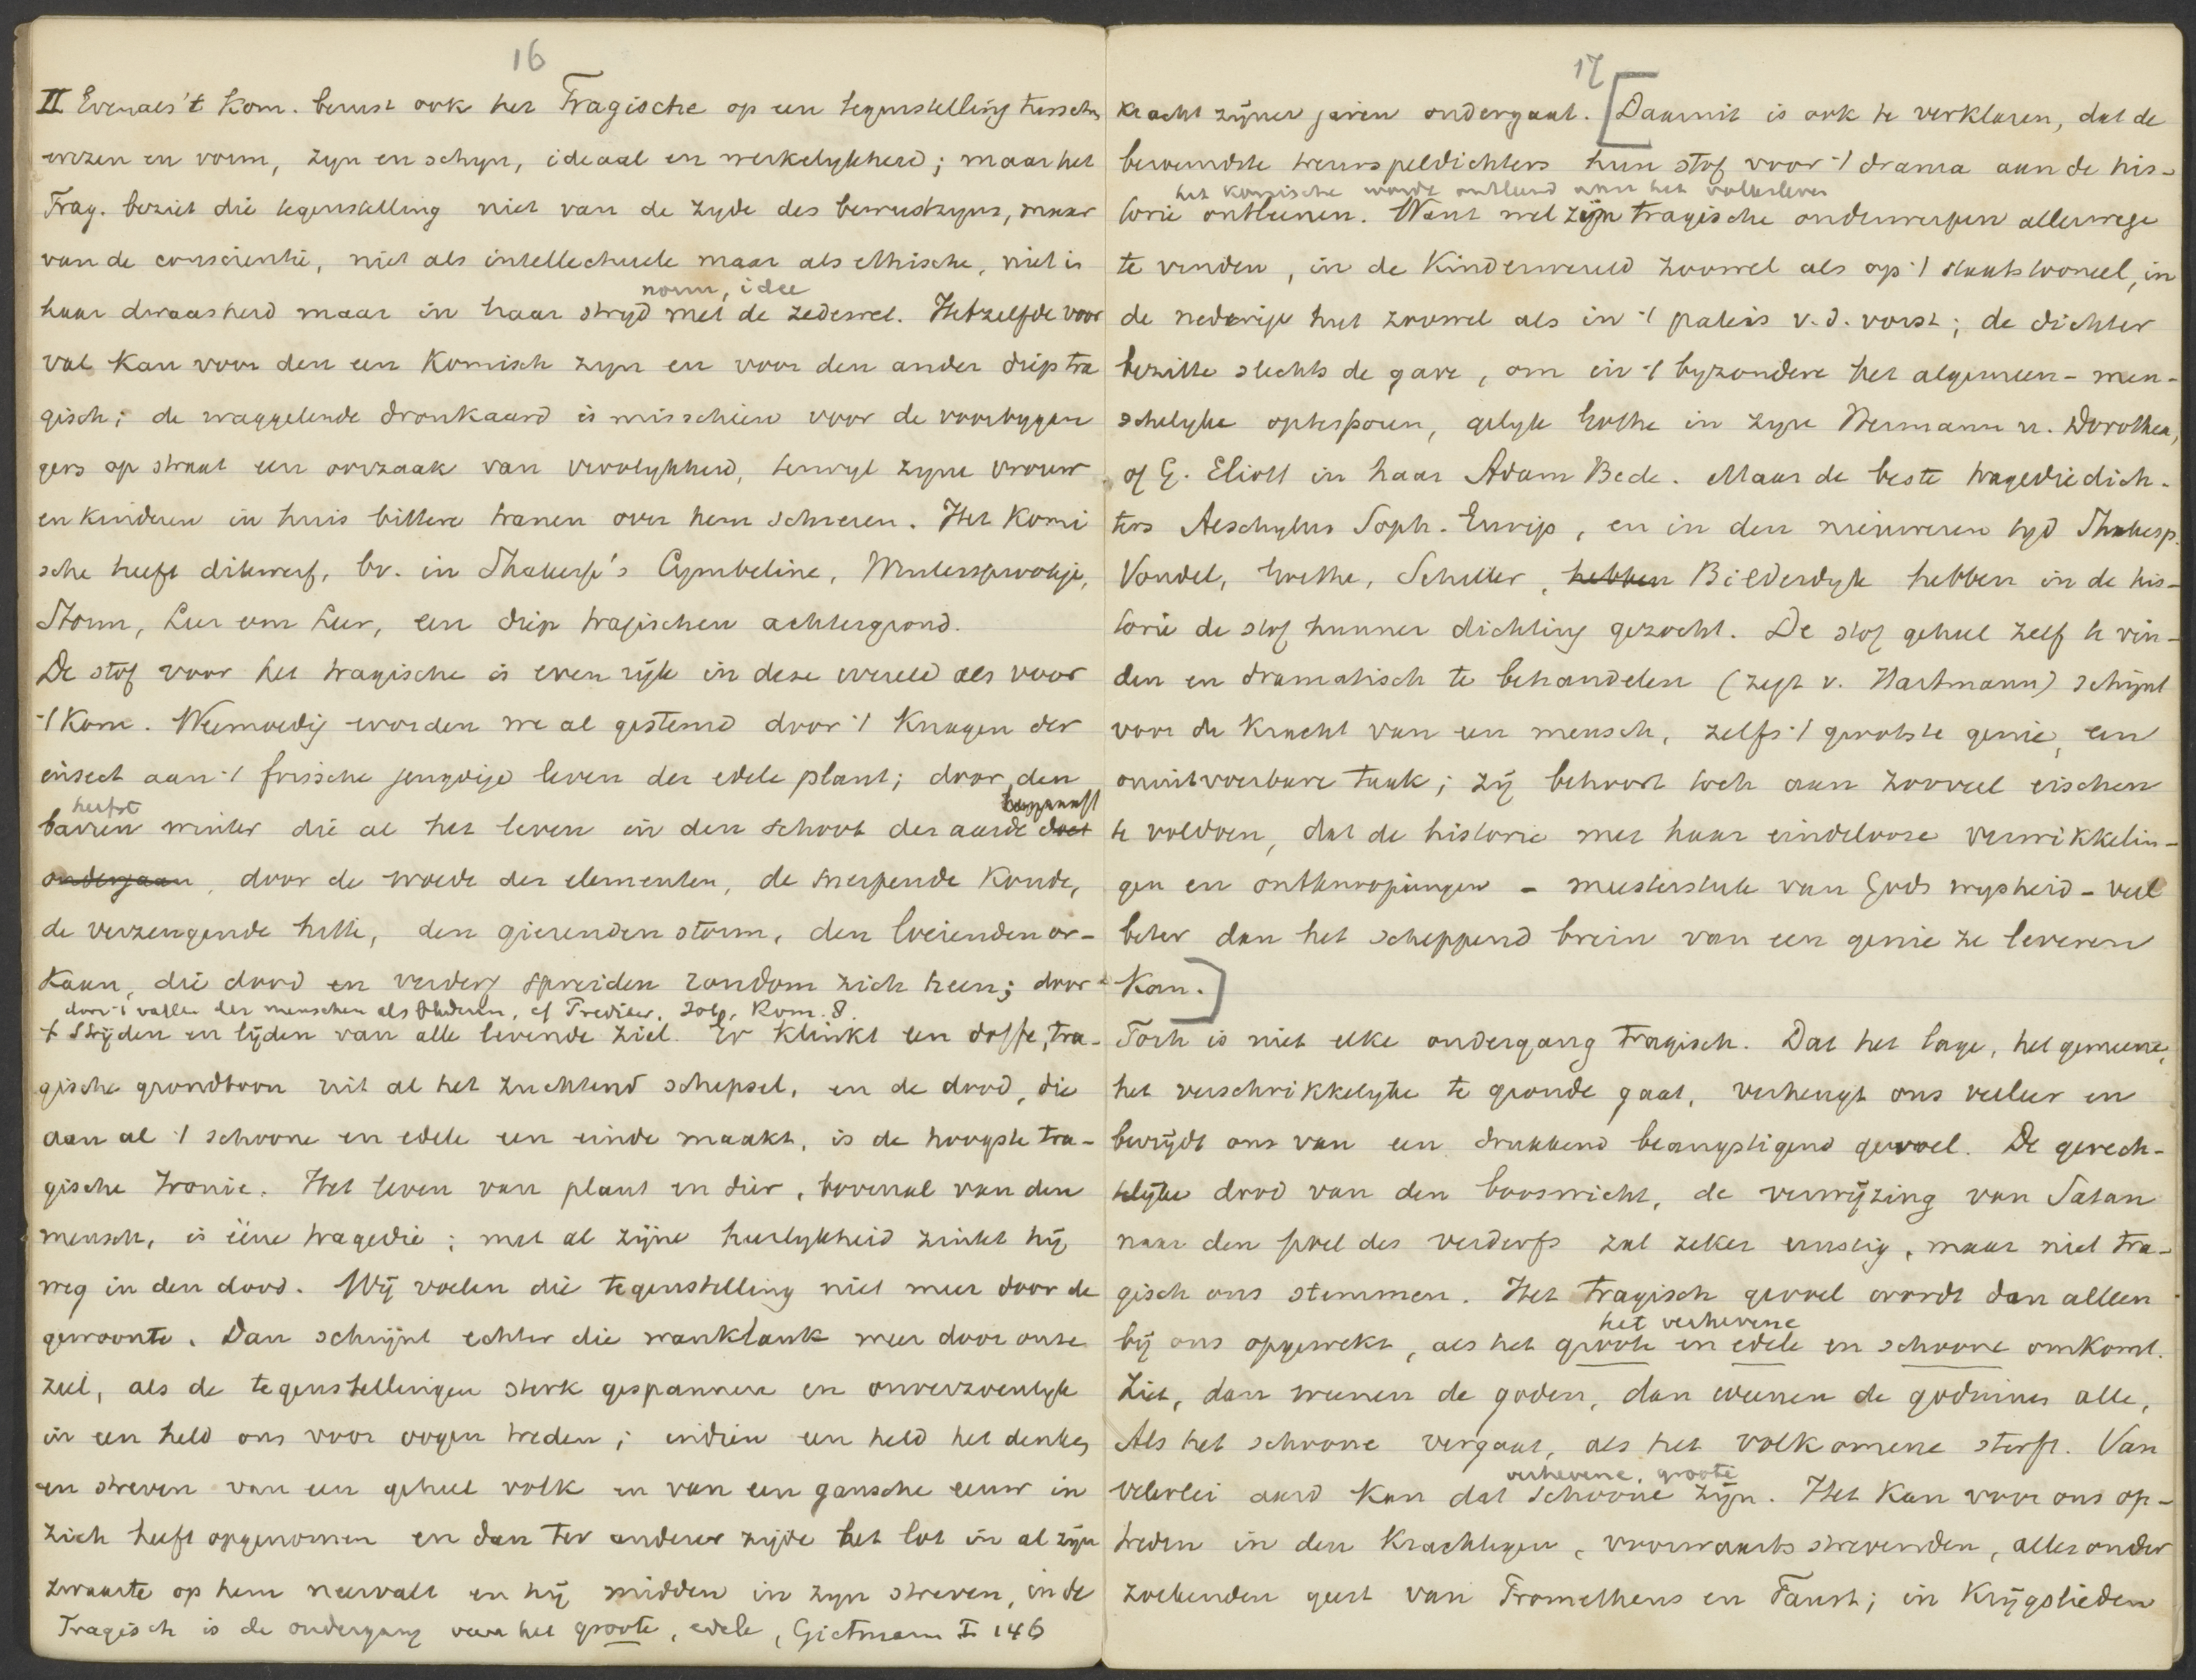 16
II Evenals 't Kom. berust ook het Tragische op een tegenstelling tusschen
wezen en vorm, zyn en schyn, ideaal en werkelykheid; maar het
Trag. beziet die tegenstelling niet van de zyde des bewustzyns, maar
van de conscientie, niet als intellectueele maar als ethische, niet in
norm, idee
haar dwaasheid maar in haar stryd met de zedewet. Hetzelfde voor
val kan voor den een komisch zyn en voor den ander diep tra
gisch; de waggelende dronkaard is misschien voor de voorbygan
gers op straat een oorzaak van vroolykheid, terwyl zyne vrouw
en kinderen in huis bittere tranen over hem schreien. Het Komi
sche heeft dikwerf, bv. in Shakesp's Cymbeline, Wintersprookje,
Storm, Leer om Leer, een diep tragischen achtergrond.
De stof voor het tragische is even ryk in deze wereld als voor
't Kom. Weemoedig worden we al gestemd door 't knagen der
insect aan 't frissche jeugdige leven der edele plant; door den
herfst
barren winter die al het leven in den schoot der aarde doet
ondergaan, door de woede der elementen, de snerpende koude,
de verzengende hitte, den gierenden storm, den loeienden or-
kaan, die dood en verderf spreiden rondom zich heen; door
door 't vallen der menschen als bladeren, cf Prediker, Job, Rom. 8.
't Strijden en lijden van alle levende ziel. Er klinkt een doffe, tra-
gische grondtoon uit al het zuchtend schepsel, en de dood, die
aan al 't schoone en edele een einde maakt, is de hoogste tra-
gische Ironie. Het leven van plant en dier, bovenal van den
mensch, is ééne tragedie; met al zijne heerlykheid zinkt hij
weg in den dood. Wij voelen die tegenstelling niet meer door de
gewoonte. Dan schrijnt echter die wanklank weer door onze
ziel, als de tegenstellingen sterk gespannen en onverzoenlyk
in een held ons voor oogen treden; indien een held het denken
en streven van een geheel volk en van een gansche eeuw in
zich heeft opgenomen en dan ter anderer zijde het lot in al zijn
zwaarte op hem neervalt en hij midden in zyn streven, in de
Tragisch is de ondergang van het groote, edele, Gietmann I 146
17
kracht zijner jaren ondergaat. [Daaruit is ook te verklaren, dat de
beroemdste treurspeldichters hun stof voor 't drama aan de his-
het komische wordt ontleend aan het volksleven
torie ontleenen. Want wel zijn tragische onderwerpen allerwege
te vinden, in de kinderwereld zoowel als op 't staatstooneel, in
de nederige hut zoowel als in 't paleis v. d. vorst; de dichter
bezitte slechts de gave, om in 't byzondere het algemeen-men-
schelyke optesporen, gelyk Göthe in zyn Hermann u. Dorothea,
of G. Eliott in haar Adam Bede. Maar de beste tragediedich-
ters Aeschylus Soph. Eurip, en in den nieuweren tyd Shakesp.
Vondel, Goethe, Schiller, hebben Bilderdyk hebben in de his-
torie de stof hunner dichting gezocht. De stof geheel zelf te vin-
den en dramatisch te behandelen (zegt v. Hartmann) schijnt
voor de kracht van een mensch, zelfs 't grootste genie, een
onuitvoerbare taak; zij behoort toch aan zooveel eischen
te voldoen, dat de historie met haar eindelooze verwikkelin-
gen en ontknoopingen - meesterstuk van Gods wysheid - veel
beter dan het scheppend brein van een genie ze leveren
kan.]
Toch is niet elke ondergang tragisch. Dat het lage, het gemeene,
het verschrikkelyke te gronde gaat, verheugt ons veeleer en
bevrijdt ons van een drukkend beangstigend gevoel. De gerech-
telijke dood van den booswicht, de verwijzing van Satan
naar den poel des verderfs zal zeker ernstig, maar niet tra-
gisch ons stemmen. Het tragisch gevoel wordt dan alleen
het verhevene
bij ons opgewekt, als het groote en edele en schoone omkomt.
Ziet, dan weenen de goden, dan weenen de godinnen alle,
Als het schoone vergaat, als het volkomene sterft. Van
verhevene, groote
velerlei aard kan dat schoone zijn. Het kan voor ons op-
treden in den krachtigen, voorwaarts strevenden, alles onder
zoekenden geest van Prometheus en Faust; in krijgslieden